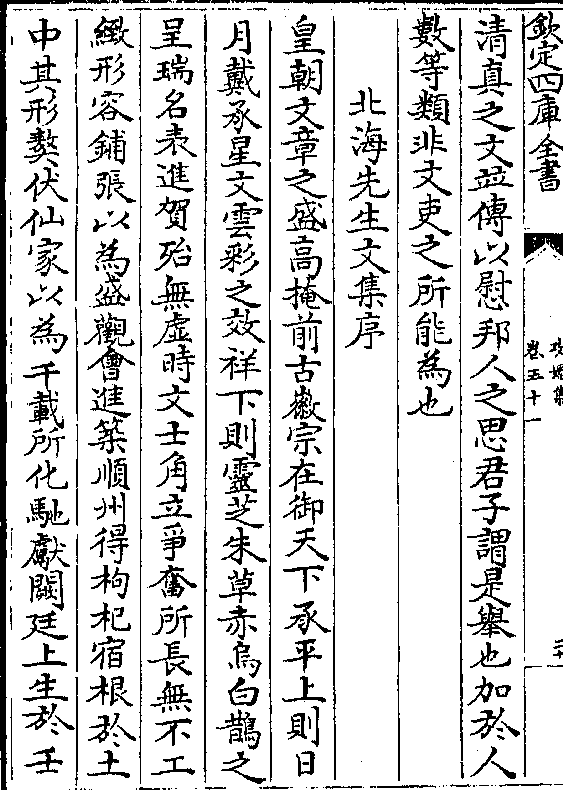 欽定四庫全書
攻媿集
卷五十一
清真之文並傳以慰邦人之思君子謂是舉也加於人
數等類非文吏之所能為也
北海先生文集序
皇朝文章之盛高掩前古徽宗在御天下承平上則日
月戴承星文雲彩之效祥下則靈芝朱草赤烏白鵲之
呈瑞名表進賀殆無虛時文士角立爭奮所長無不工
緻形容鋪張以為盛觀會進築順州得枸杞宿根於土
中其形獒伏仙家以為千載所化馳獻闕廷上生於壬